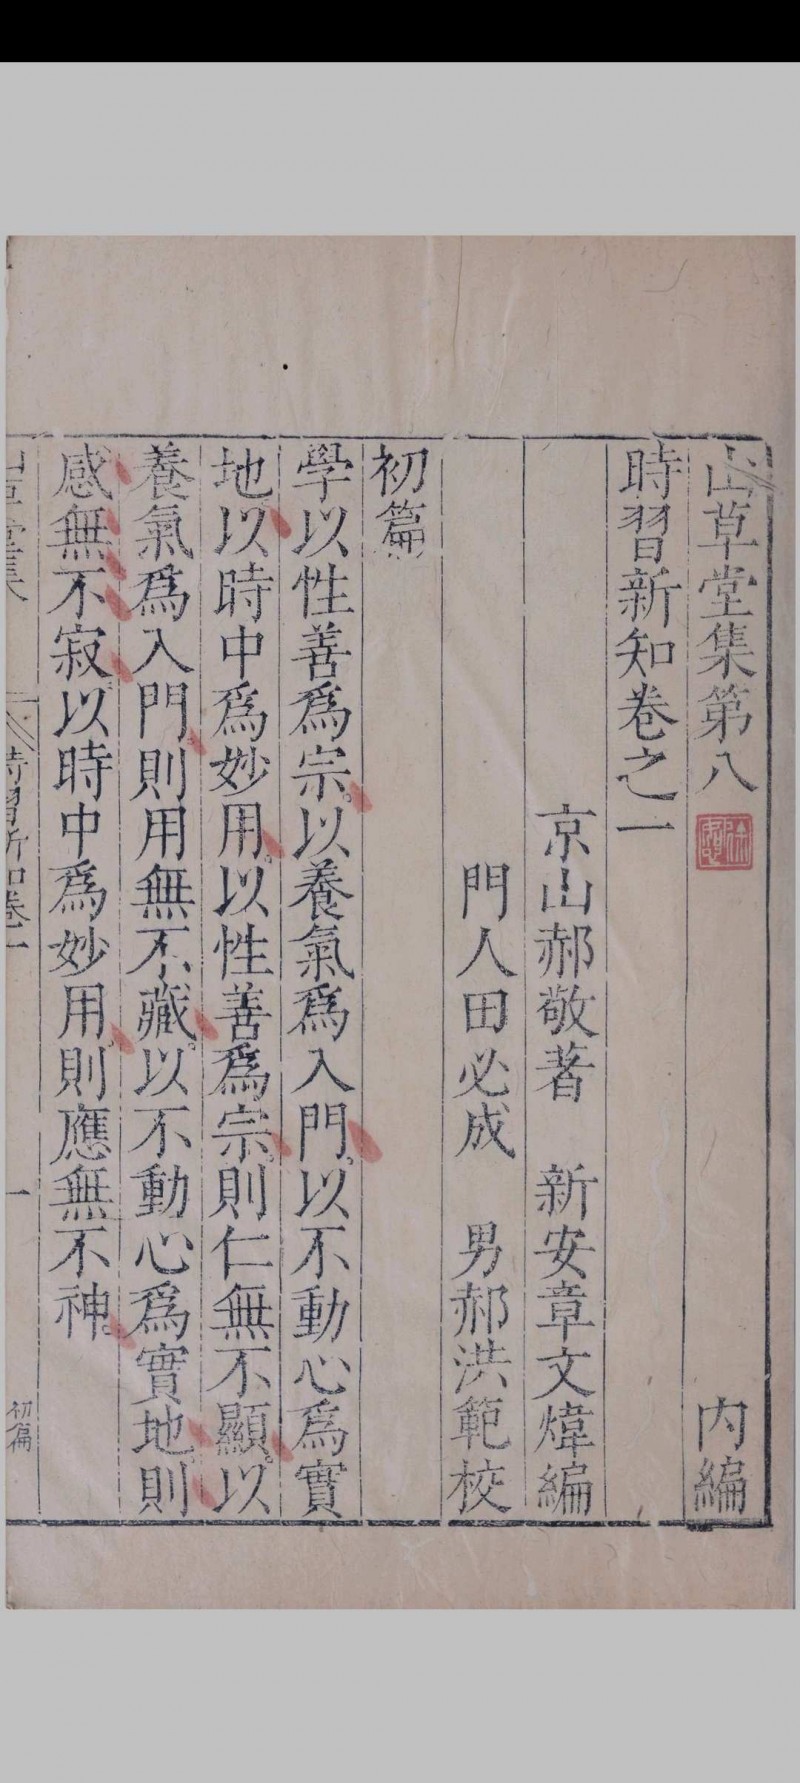 山草堂集第八 內編
時習新知卷之一
京山郝敬著 新安章文煒編
門人田必成 男郝洪範校
初篇
學以性善爲宗以養氣爲入門以不動心爲實
地以時中爲妙用以性善爲宗則仁無不顯以
養氣爲入門則用無不藏以不動心爲實地則
感無不寂以時中爲妙用則應無不神
時習新知卷一
一
初篇